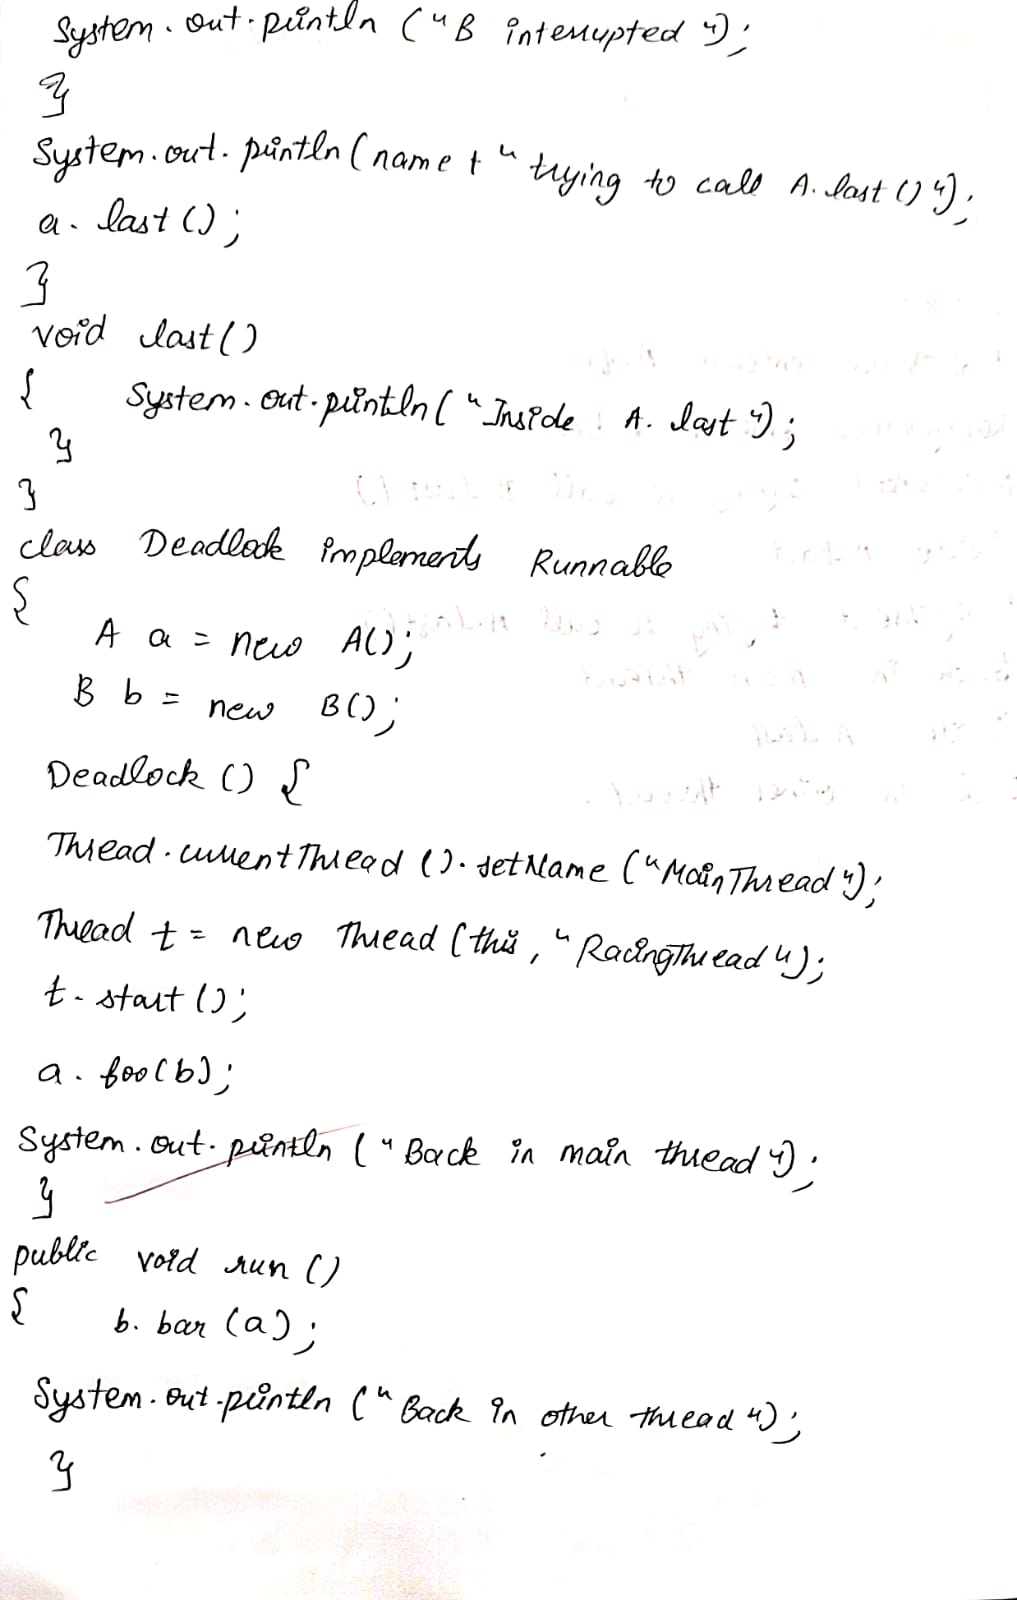 System.out.println ("B interrupted");
}
System.out.println (name + "trying to call A.last ()");
a. last ();
}
void last()
{ System.out.println ("Inside A. last");
}
}
class Deadlock implements Runnable
{
A a = new A();
B b = new B();
Deadlock () {
Thread.currentThread ().setName ("MainThread");
Thread t = new Thread (this, "RacingThread");
t.start ();
a. foo(b);
System.out.println ("Back in main thread");
}
public void run ()
{ b. bar (a);
System.out.println ("Back in other thread");
}